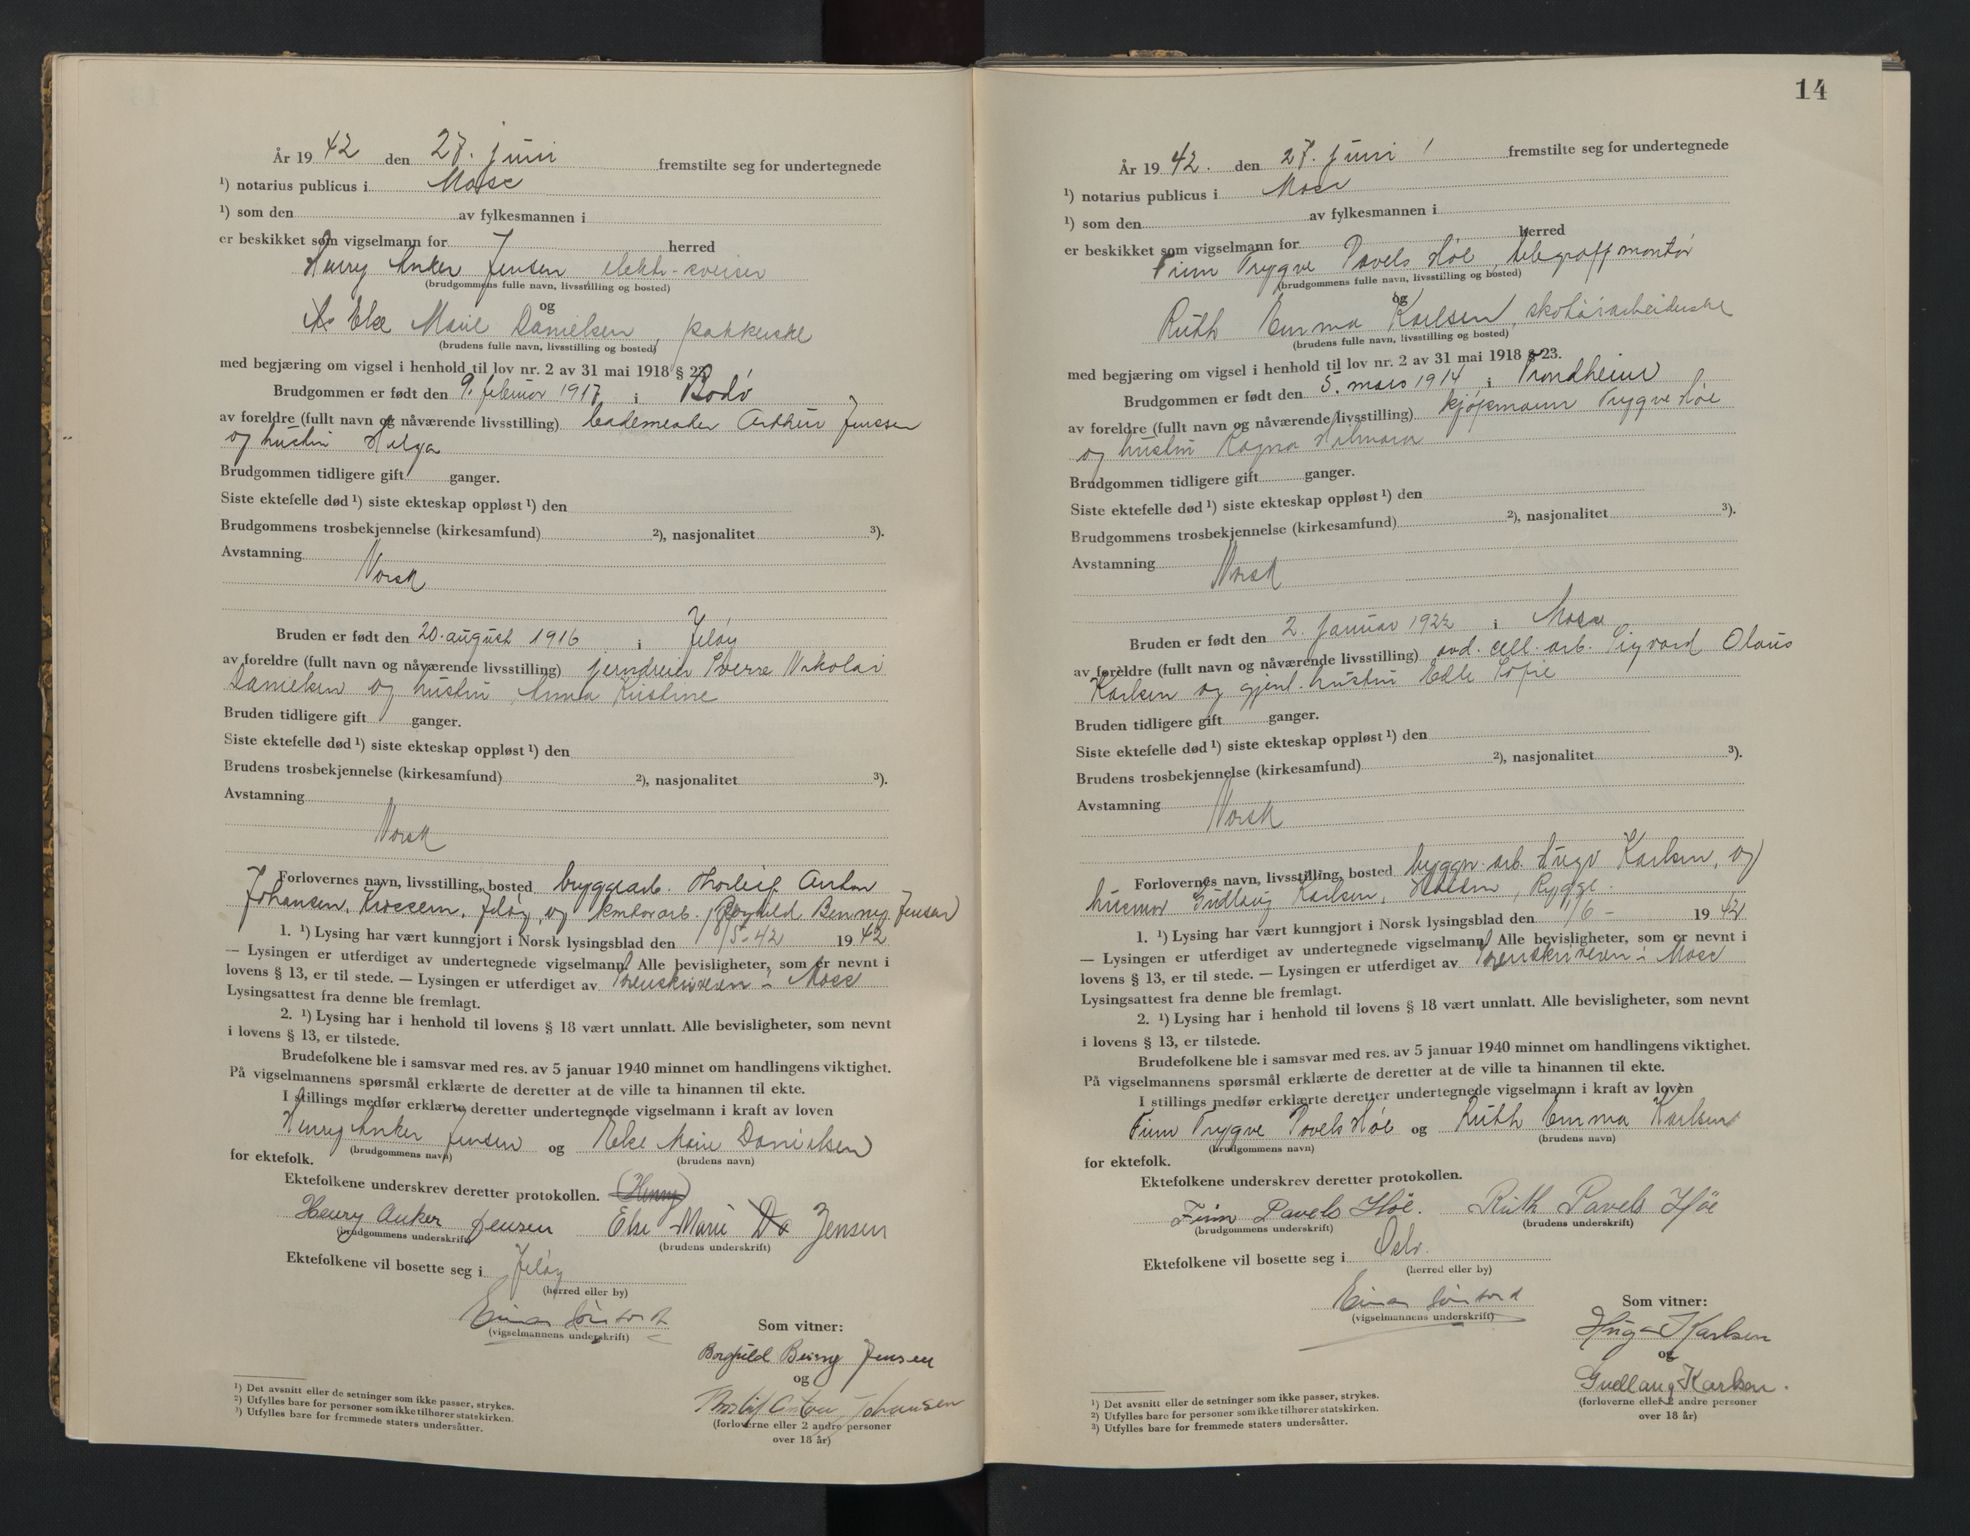 År 1942 den 27. juni fremstilte seg for undertegnede
¹) notarius publicus i Moss
¹) som den av fylkesmannen i
er beskikket som vigselmann for herred
Henry Anker Jensen elektr. sveiser
(brudgommens fulle navn, livsstilling og bosted)
og
Else Marie Danielsen, pakkerske
(brudens fulle navn, livsstilling og bosted)
med begjæring om vigsel i henhold til lov nr. 2 av 31 mai 1918 § 23.
Brudgommen er født den 9. februar 1917 i Bodö
av foreldre (fullt navn og nåværende livsstilling) bademester Arthur Jenssen
og hustru Helga
Brudgommen tidligere gift ganger.
Siste ektefelle død ¹) siste ekteskap oppløst ¹) den
Brudgommens trosbekjennelse (kirkesamfund) ²), nasjonalitet ³).
Avstamning
Norsk
Bruden er født den 20. august 1916 i Jelöy
av foreldre (fullt navn og nåværende livsstilling) jerndreier Sverre Nikolai
Danielsen og hustru Anna Kristine
Bruden tidligere gift ganger.
Siste ektefelle død ¹) siste ekteskap oppløst ¹) den
Brudens trosbekjennelse (kirkesamfund) ²), nasjonalitet ³).
Avstamning
Norsk
Forlovernes navn, livsstilling, bosted bryggearb. Thorleif Anton
Johansen, Krossern, Jelöy, og kontorarb. Borghild Benny Jensen
1. ¹) Lysing har vært kunngjort i Norsk lysingsblad den 18/5-42 1942
— Lysingen er utferdiget av undertegnede vigselmann. Alle bevisligheter, som er nevnt i
lovens § 13, er til stede. — Lysingen er utferdiget av Sorenskriveren i Moss
Lysingsattest fra denne ble fremlagt.
2. ¹) Lysing har i henhold til lovens § 18 vært unnlatt. Alle bevisligheter, som nevnt
i lovens § 13, er tilstede.
Brudefolkene ble i samsvar med res. av 5 januar 1940 minnet om handlingens viktighet.
På vigselmannens spørsmål erklærte de deretter at de ville ta hinannen til ekte.
I stillings medfør erklærte deretter undertegnede vigselmann i kraft av loven
Henry Anker Jensen og Else Marie Danielsen
(brudgommens navn) (brudens navn)
for ektefolk.
Ektefolkene underskrev deretter protokollen. (Henry)
Henry Anker Jensen Else Marie Da Jensen
(brudgommens underskrift) (brudens underskrift)
Ektefolkene vil bosette seg i Jelöy
(herred eller by)
(vigselmannens underskrift)
Som vitner:
Borghild Benny Jensen
og
Thorleif Anton Johansen
(forloverne eller 2 andre personer
over 18 år)
¹) Det avsnitt eller de setninger som ikke passer, strykes.
²) Utfylles bare for personer som ikke tilhører statskirken.
³) Utfylles bare for fremmede staters undersåtter.
14
År 1942. den 27. juni fremstilte seg for undertegnede
¹) notarius publicus i Moss
¹) som den av fylkesmannen i
er beskikket som vigselmann for herred
Finn Trygve Pavels Höe, telegraffmontör
(brudgommens fulle navn, livsstilling og bosted)
og
Ruth Emma Karlsen, skotöiarbeiderske
(brudens fulle navn, livsstilling og bosted)
med begjæring om vigsel i henhold til lov nr. 2 av 31 mai 1918 § 23.
Brudgommen er født den 5. mars 1914 i Trondheim
av foreldre (fullt navn og nåværende livsstilling) kjöpmann Trygve Höe
og hustru Ragna Hilmara
Brudgommen tidligere gift ganger.
Siste ektefelle død ¹) siste ekteskap oppløst ¹) den
Brudgommens trosbekjennelse (kirkesamfund) ²), nasjonalitet ³).
Avstamning
Norsk
Bruden er født den 2. januar 1922 i Moss
av foreldre (fullt navn og nåværende livsstilling) avd. cell. arb. Sigvard Olaus
Karlsen og gjenl. hustru Edle Sofie
Bruden tidligere gift ganger.
Siste ektefelle død ¹) siste ekteskap oppløst ¹) den
Brudens trosbekjennelse (kirkesamfund) ²), nasjonalitet ³).
Avstamning
Norsk
Forlovernes navn, livsstilling, bosted byggn. arb. Hugo Karlsen, og
husmor Gudlaug Karlsen, Halsen, Rygge.
1. ¹) Lysing har vært kunngjort i Norsk lysingsblad den 1/6 - 1942
— Lysingen er utferdiget av undertegnede vigselmann. Alle bevisligheter, som er nevnt i
lovens § 13, er til stede. — Lysingen er utferdiget av Sorenskriveren i Moss
Lysingsattest fra denne ble fremlagt.
2. ¹) Lysing har i henhold til lovens § 18 vært unnlatt. Alle bevisligheter, som nevnt
i lovens § 13, er tilstede.
Brudefolkene ble i samsvar med res. av 5 januar 1940 minnet om handlingens viktighet.
På vigselmannens spørsmål erklærte de deretter at de ville ta hinannen til ekte.
I stillings medfør erklærte deretter undertegnede vigselmann i kraft av loven
Finn Trygve Pavels Höe og Ruth Emma Karlsen
(brudgommens navn) (brudens navn)
for ektefolk.
Ektefolkene underskrev deretter protokollen.
Finn Pavels Höe. Ruth Pavels Höe
(brudgommens underskrift) (brudens underskrift)
Ektefolkene vil bosette seg i Oslo.
(herred eller by)
(vigselmannens underskrift)
Som vitner:
Hugo Karlsen
og
Gudlaug Karlsen.
(forloverne eller 2 andre personer
over 18 år)
¹) Det avsnitt eller de setninger som ikke passer, strykes.
²) Utfylles bare for personer som ikke tilhører statskirken.
³) Utfylles bare for fremmede staters undersåtter.